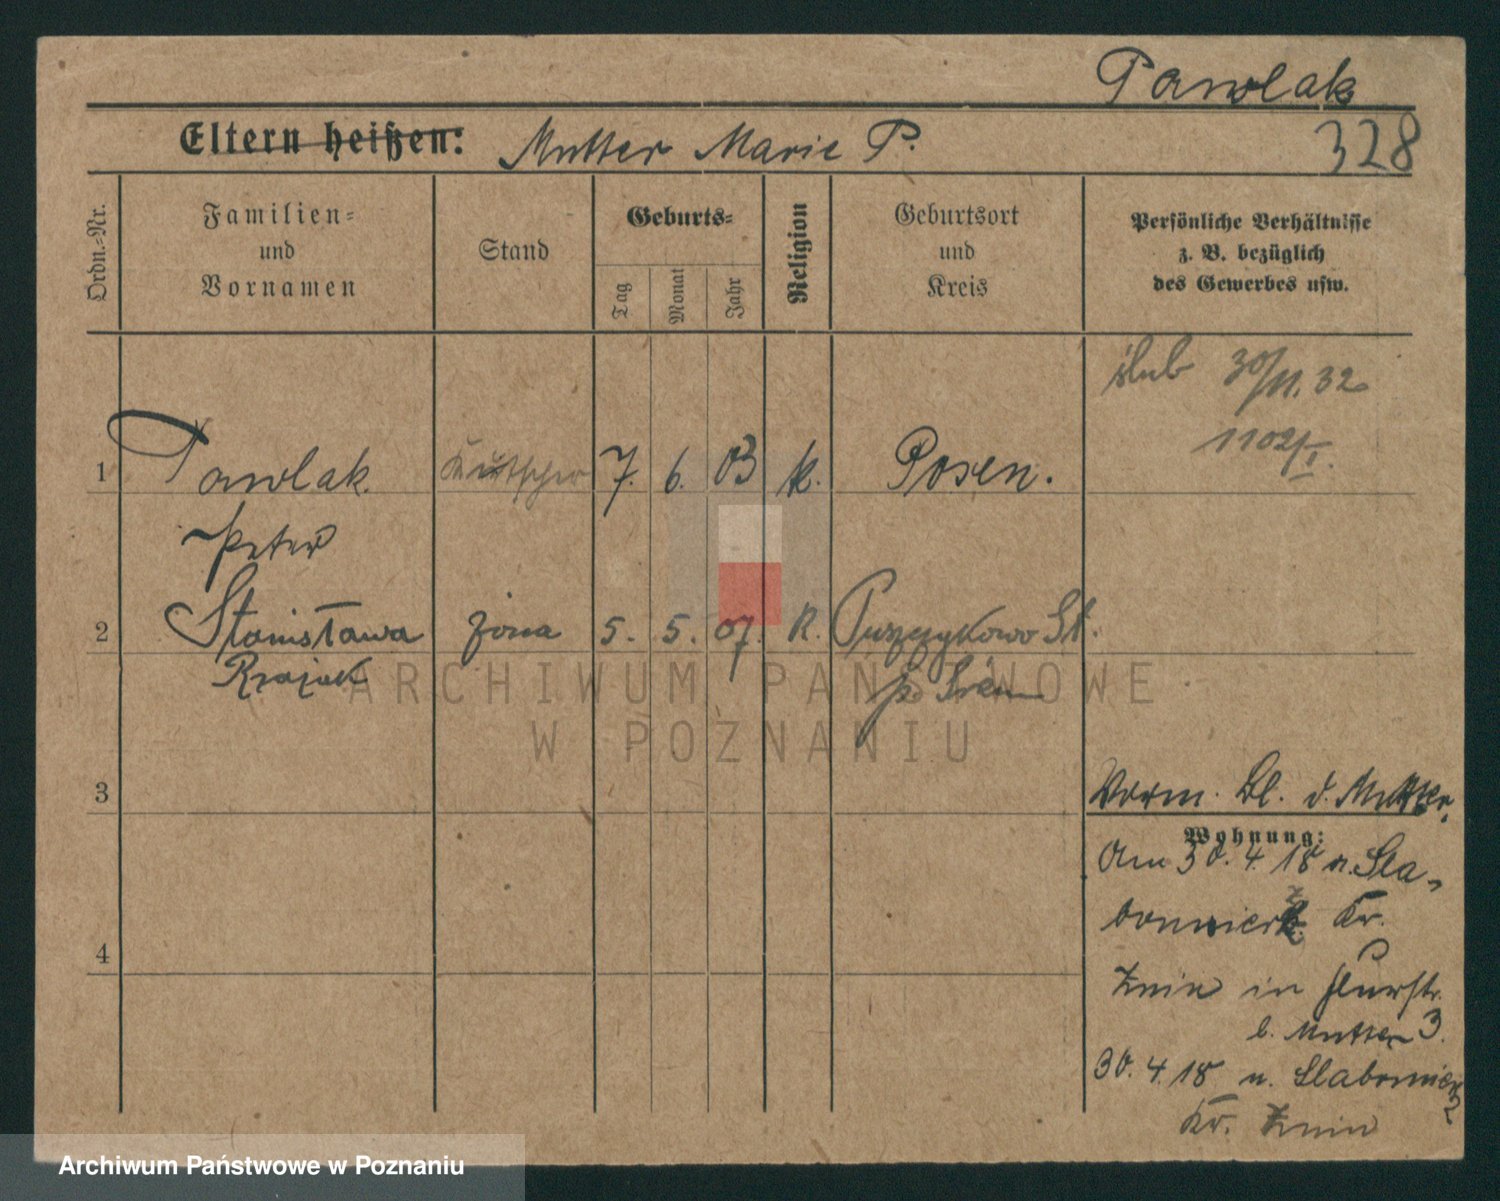 Pawlak
Eltern heißen: Mutter Marie P.
328
Ordn.-Nr.
Familien-
und
Vornamen
Stand
Geburts-
Tag
Monat
Jahr
Religion
Geburtsort
und
Kreis
Persönliche Verhältnisse
z. B. bezüglich
des Gewerbes usw.
ślub 30/11.32
1102/I.
1 Pawlak Kutscher 7. 6. 03 k. Posen.
Peter
2 Stanisława żona 5. 5. 07. R. Puszczykowo St.
Rzajak p. Śrem
ARCHIWUM PAŃSTWOWE
W POZNANIU
3
Vorm. Bl. d. Mutter.
Wohnung:
Am 30.4.18 n. Sla-
Kr.
4
Znin in Flurstr.
b. Mutter 3.
30.4.18 n.
Kr. Znin
Archiwum Państwowe w Poznaniu